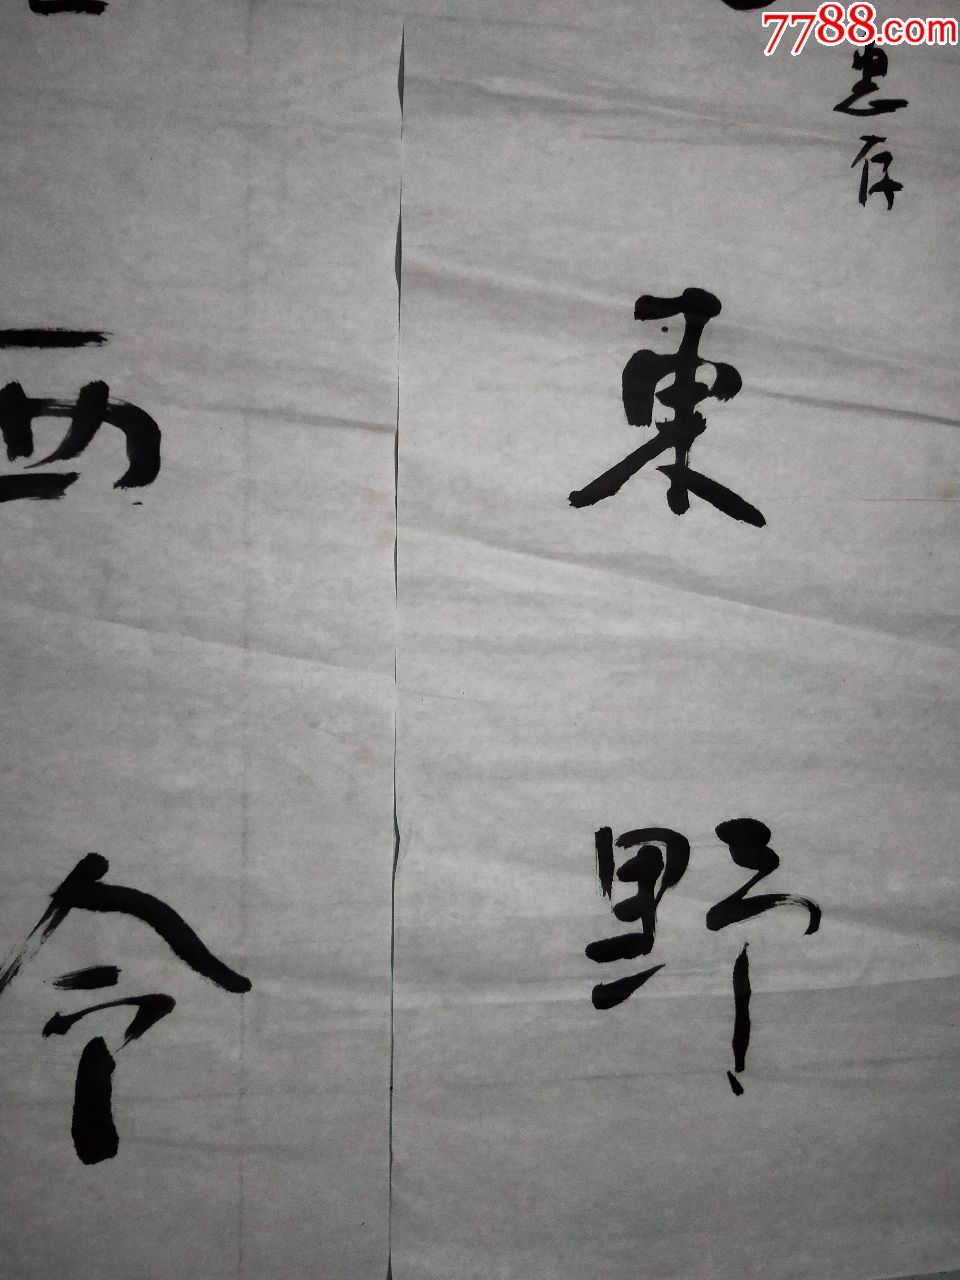 7788.com
惠存
東野
西令